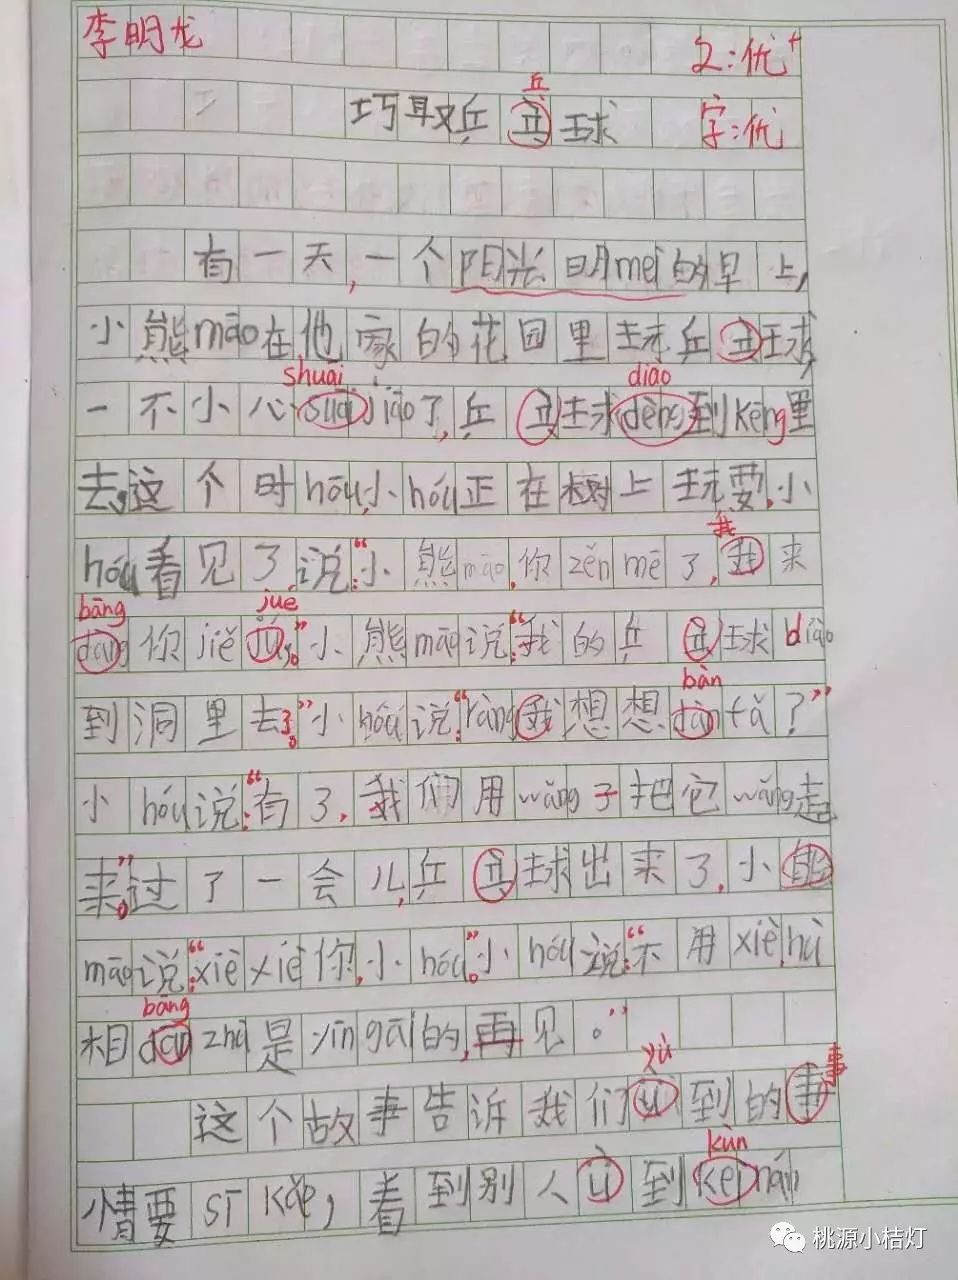 李明龙 文:优+
兵
巧取乒乓球 字:优
有一天,一个阳光明mei的早上,
小熊māo在他家的花园里玩乒乓球,
shuāi diào
一不小心suāi jiāo了,乒乓球dèng到kēng里
去,这个时hóu,小hóu正在树上玩耍,小
我
hóu看见了,说:“小熊māo,你zěn mē了,我来
bāng jué
dāng你jiě jú。”小熊māo说:“我的乒乓球diào
bàn
到洞里去了。”小hóu说:“ràng我想想dàn fǎ?”
小hóu说:“有了,我们用wǎng子把它wǎng起
来。”过了一会儿,乒乓球出来了,小能
māo说:“xiè xiè你,小hóu。”小hóu说:“不用xiè,hù
bāng
相dāng zhù是yīn gāi的,再见。”
yù 事
这个故事告诉我们ù到的事
kùn
情要sī kǎo,看到别人ù到kei nán
桃源小桔灯